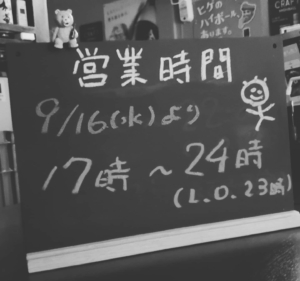 ヒゲの
ハイボール、
あります。
CRAF
営業時間
9/16(水)より
17時～24時
(L.O.23時)